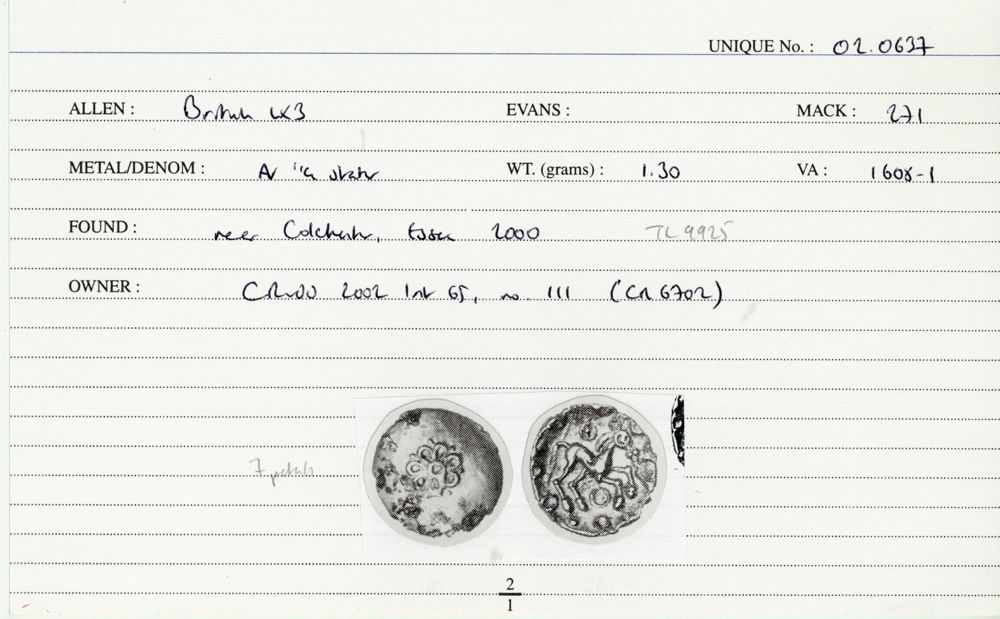 UNIQUE No. : 02.0637
ALLEN : British LX3 EVANS : MACK : 271
METAL/DENOM : AV 1/4 stater WT. (grams) : 1.30 VA : 1608-1
FOUND : near Colchester, Essex 2000 TL 9925
OWNER : 2002 65, no 111 (CR 6702)
7 petals
2
1